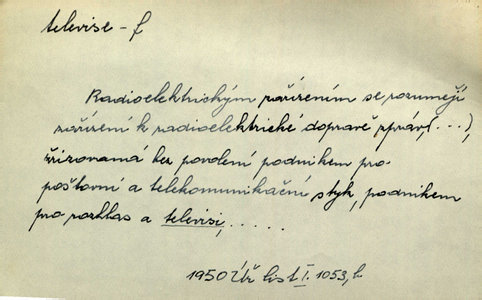 televise - f
Radioelektrickým zařízením se rozumějí
zařízení k radioelektrické dopravě zpráv, (...),
zřizovaná bez povolení podnikem pro
poštovní a telekomunikační styk, podnikem
pro rozhlas a televisi, .....
1950 list I. 1053, b